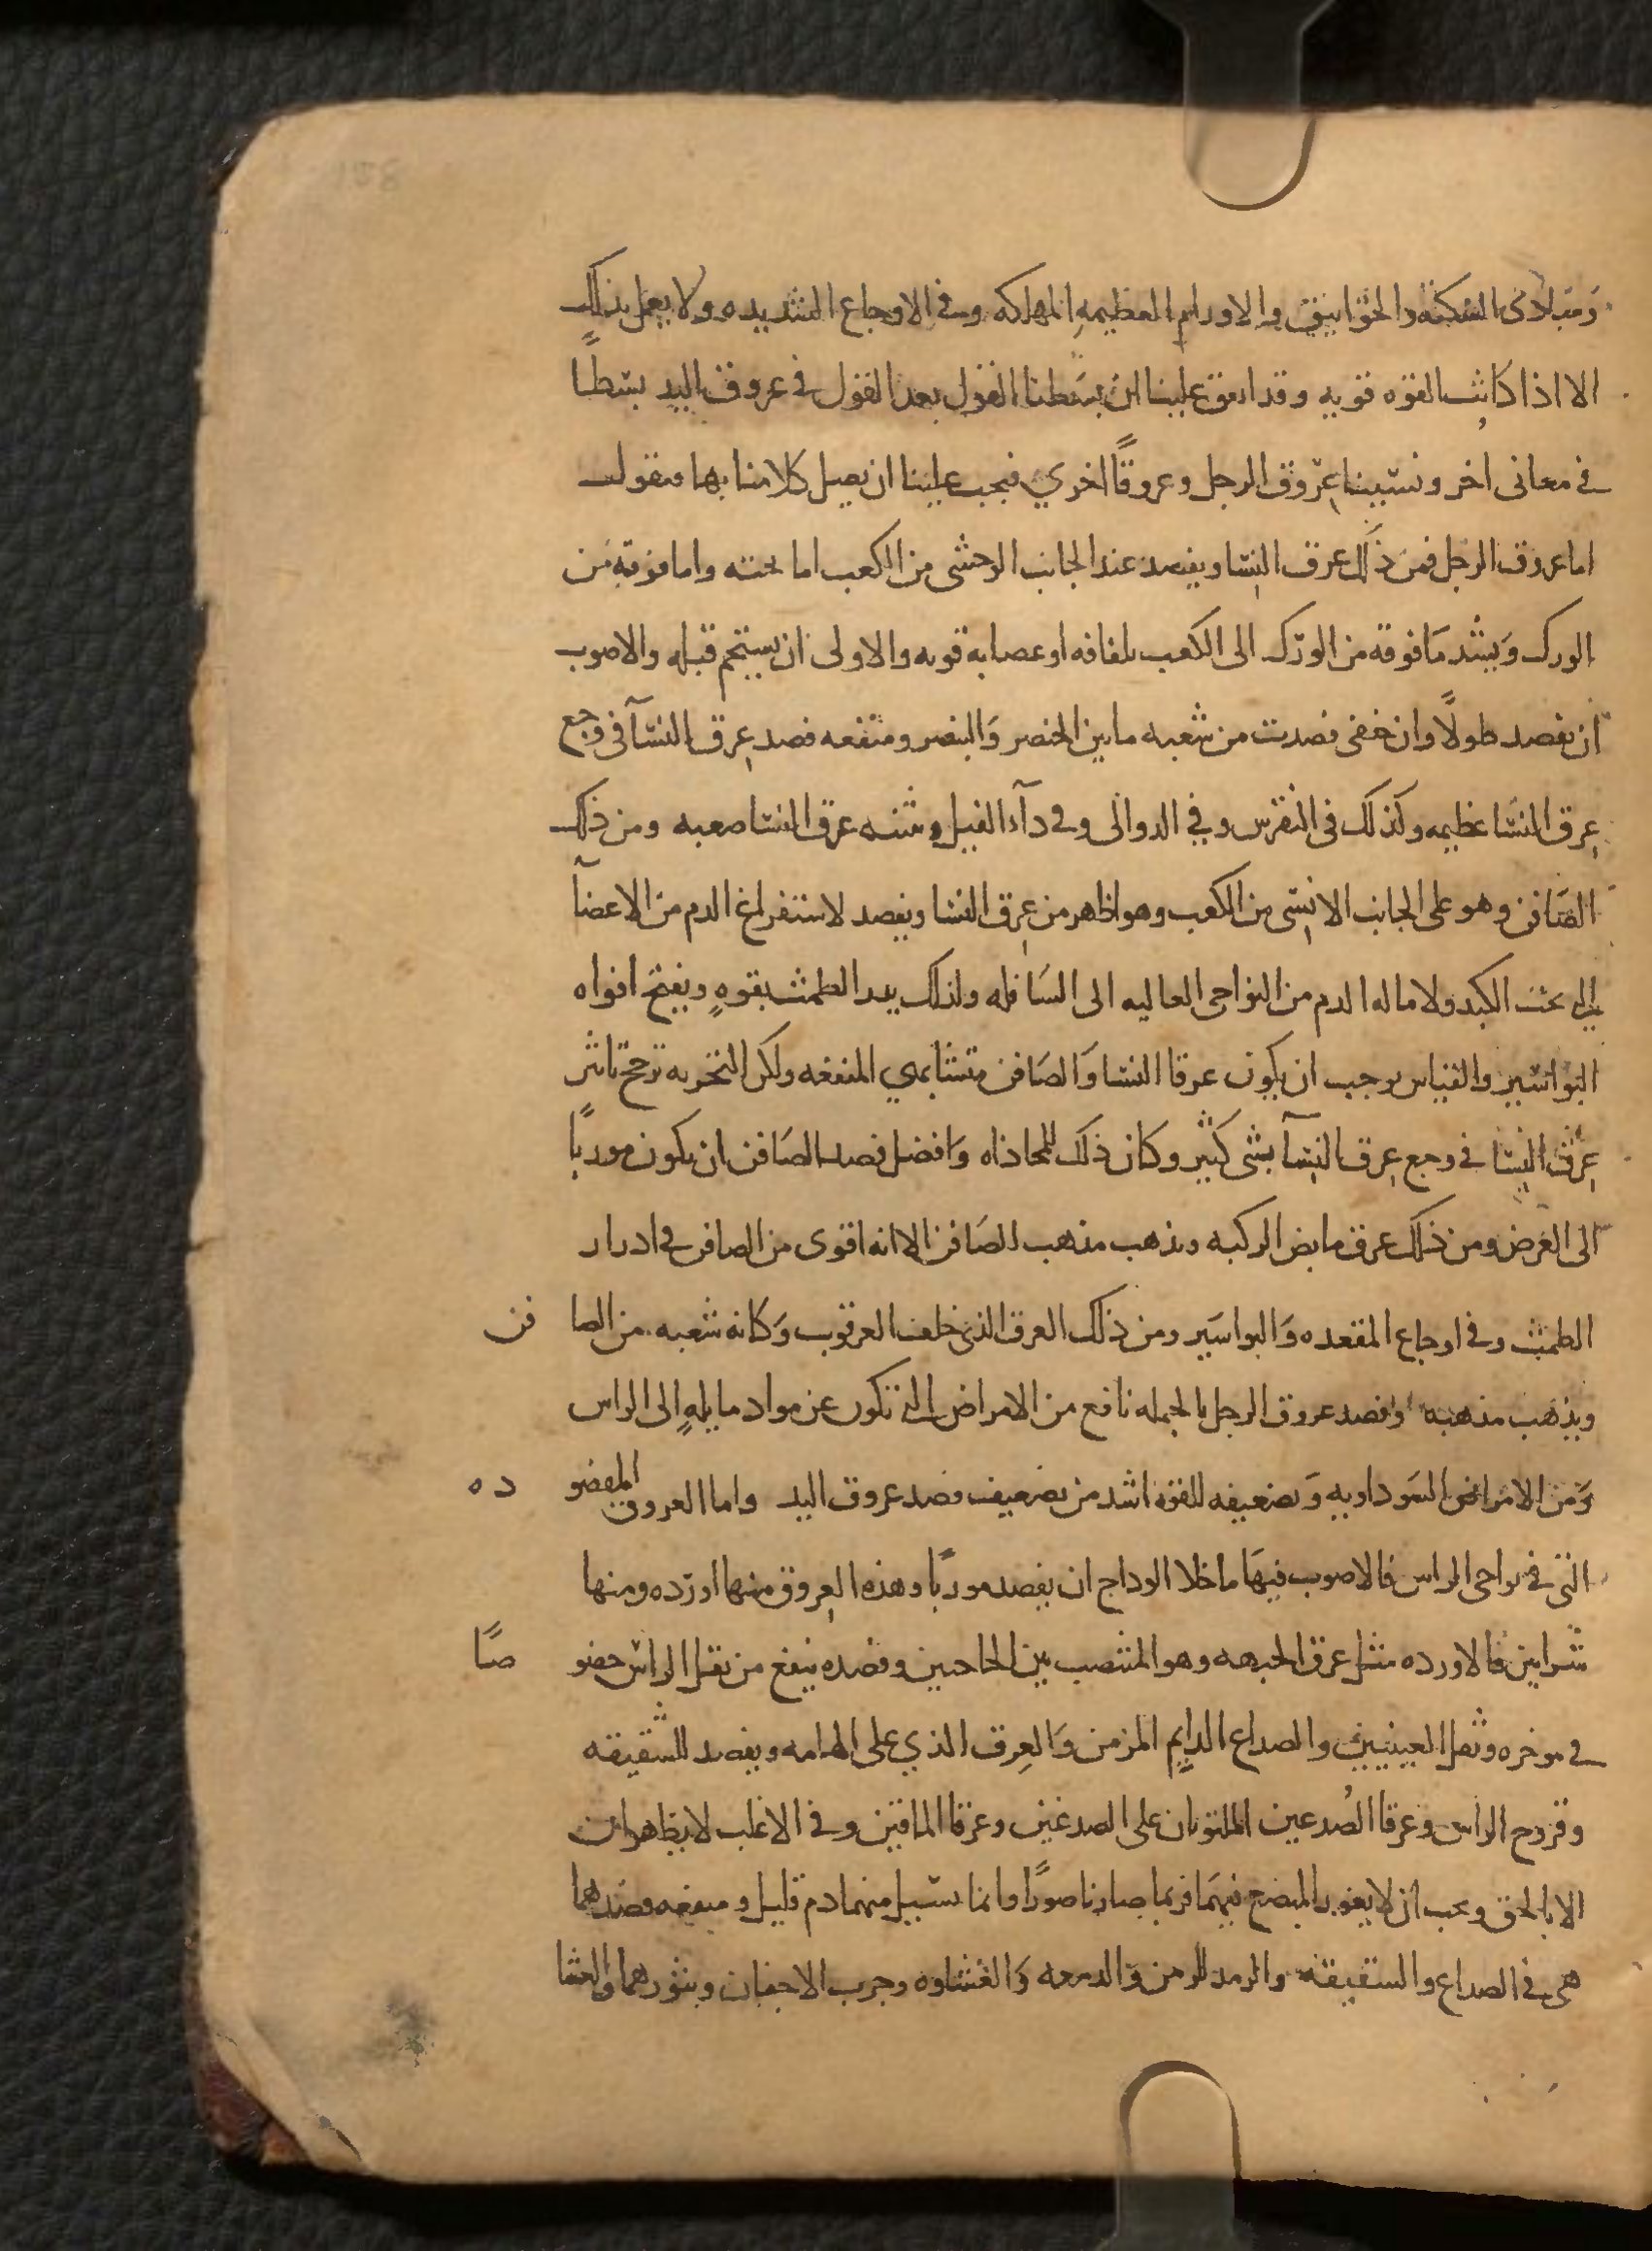 ومبادى السكته والخوانيق والاورام العظيمه المهلكه وفى الاوجاع الشديده ولا يعمل بذلك
الا اذا كانت القوه قويه وقد اتفق علينا ان بسطنا القول بعد القول فى عروق اليد بسطًا
فى معانى اخر ونسينا عروق الرجل وعروقًا اخري فيجب علينا ان نصل كلامنا بها فنقول
اما عروق الرجل فمن ذلك عرق النسا ويفصد عند الجانب الوحشى من الكعب اما تحته واما فوقه من
الورك ويشد ما فوقه من الورك الى الكعب بلفافه او عصابه قويه والاولى ان يستحم قبله والاصوب
ان يفصد طولًا وان خفى فصدت من شعبه ما بين الخنصر والبنصر ومنفعه فصد عرق النسآ فى وجع
عرق النسا عظيمه وكذلك فى النقرس وفي الدوالى وفى دآء الفيل وتثنيه عرق النسا صعبه ومن ذلك
الصافن وهو على الجانب الانسى من الكعب وهو اظهر من عرق النسا ويفصد لاستفراغ الدم من الاعضآ
التى تحت الكبد ولاماله الدم من النواحى العاليه الى السافله ولذلك يدر الطمث بقوهٍ ويفتح افواه
البواسير والقياس يوجب ان يكون عرقا النسا والصافن متشابهي المنفعه ولكن التجربه ترجح تاثير
عرق النسا فى وجع عرق النسآ بشى كثير وكان ذلك للمحاذاه وافضل فصد الصافن ان يكون موربًا
الى العرض ومن ذلك عرق مابض الركبه ويذهب مذهب الصافن الا انه اقوى من الصافن فى ادرار
الطمث وفى اوجاع المقعده والبواسير ومن ذلك العرق الذى خلف العرقوب وكانه شعبه من الصا فن
ويذهب مذهبه وفصد عروق الرجل بالجمله نافع من الامراض التى تكون عن مواد مايلهٍ الى الراس
ومن الامراض السوداويه وتضعيفه للقوه اشد من تضعيف فصد عروق اليد واما العروق المفصو ده
التى فى نواحى الراس فالاصوب فيها ما خلا الوداج ان يفصد موربًا وهذه العروق منها اورده ومنها
شرايين فالاورده مثل عرق الجبهه وهو المنتصب بين الحاجبين وفصده ينفع من ثقل الراس خصو صًا
فى موخره وثقل العينين والصداع الدايم المزمن والعرق الذي على الهامه ويفصد للشقيقه
وقروح الراس وعرقا الصدغين الملتويان على الصدغين وعرقا الماقين وفى الاغلب لا يظهران
الا بالخنق ويجب ان لا يغور المبضع فيهما فربما صار ناصورًا وانما يسيل منهما دم قليل ومنفعه فصدهما
هى فى الصداع والشقيقه والرمد المزمن والدمعه والغشاوه وجرب الاجفان وبثورهما والعشا